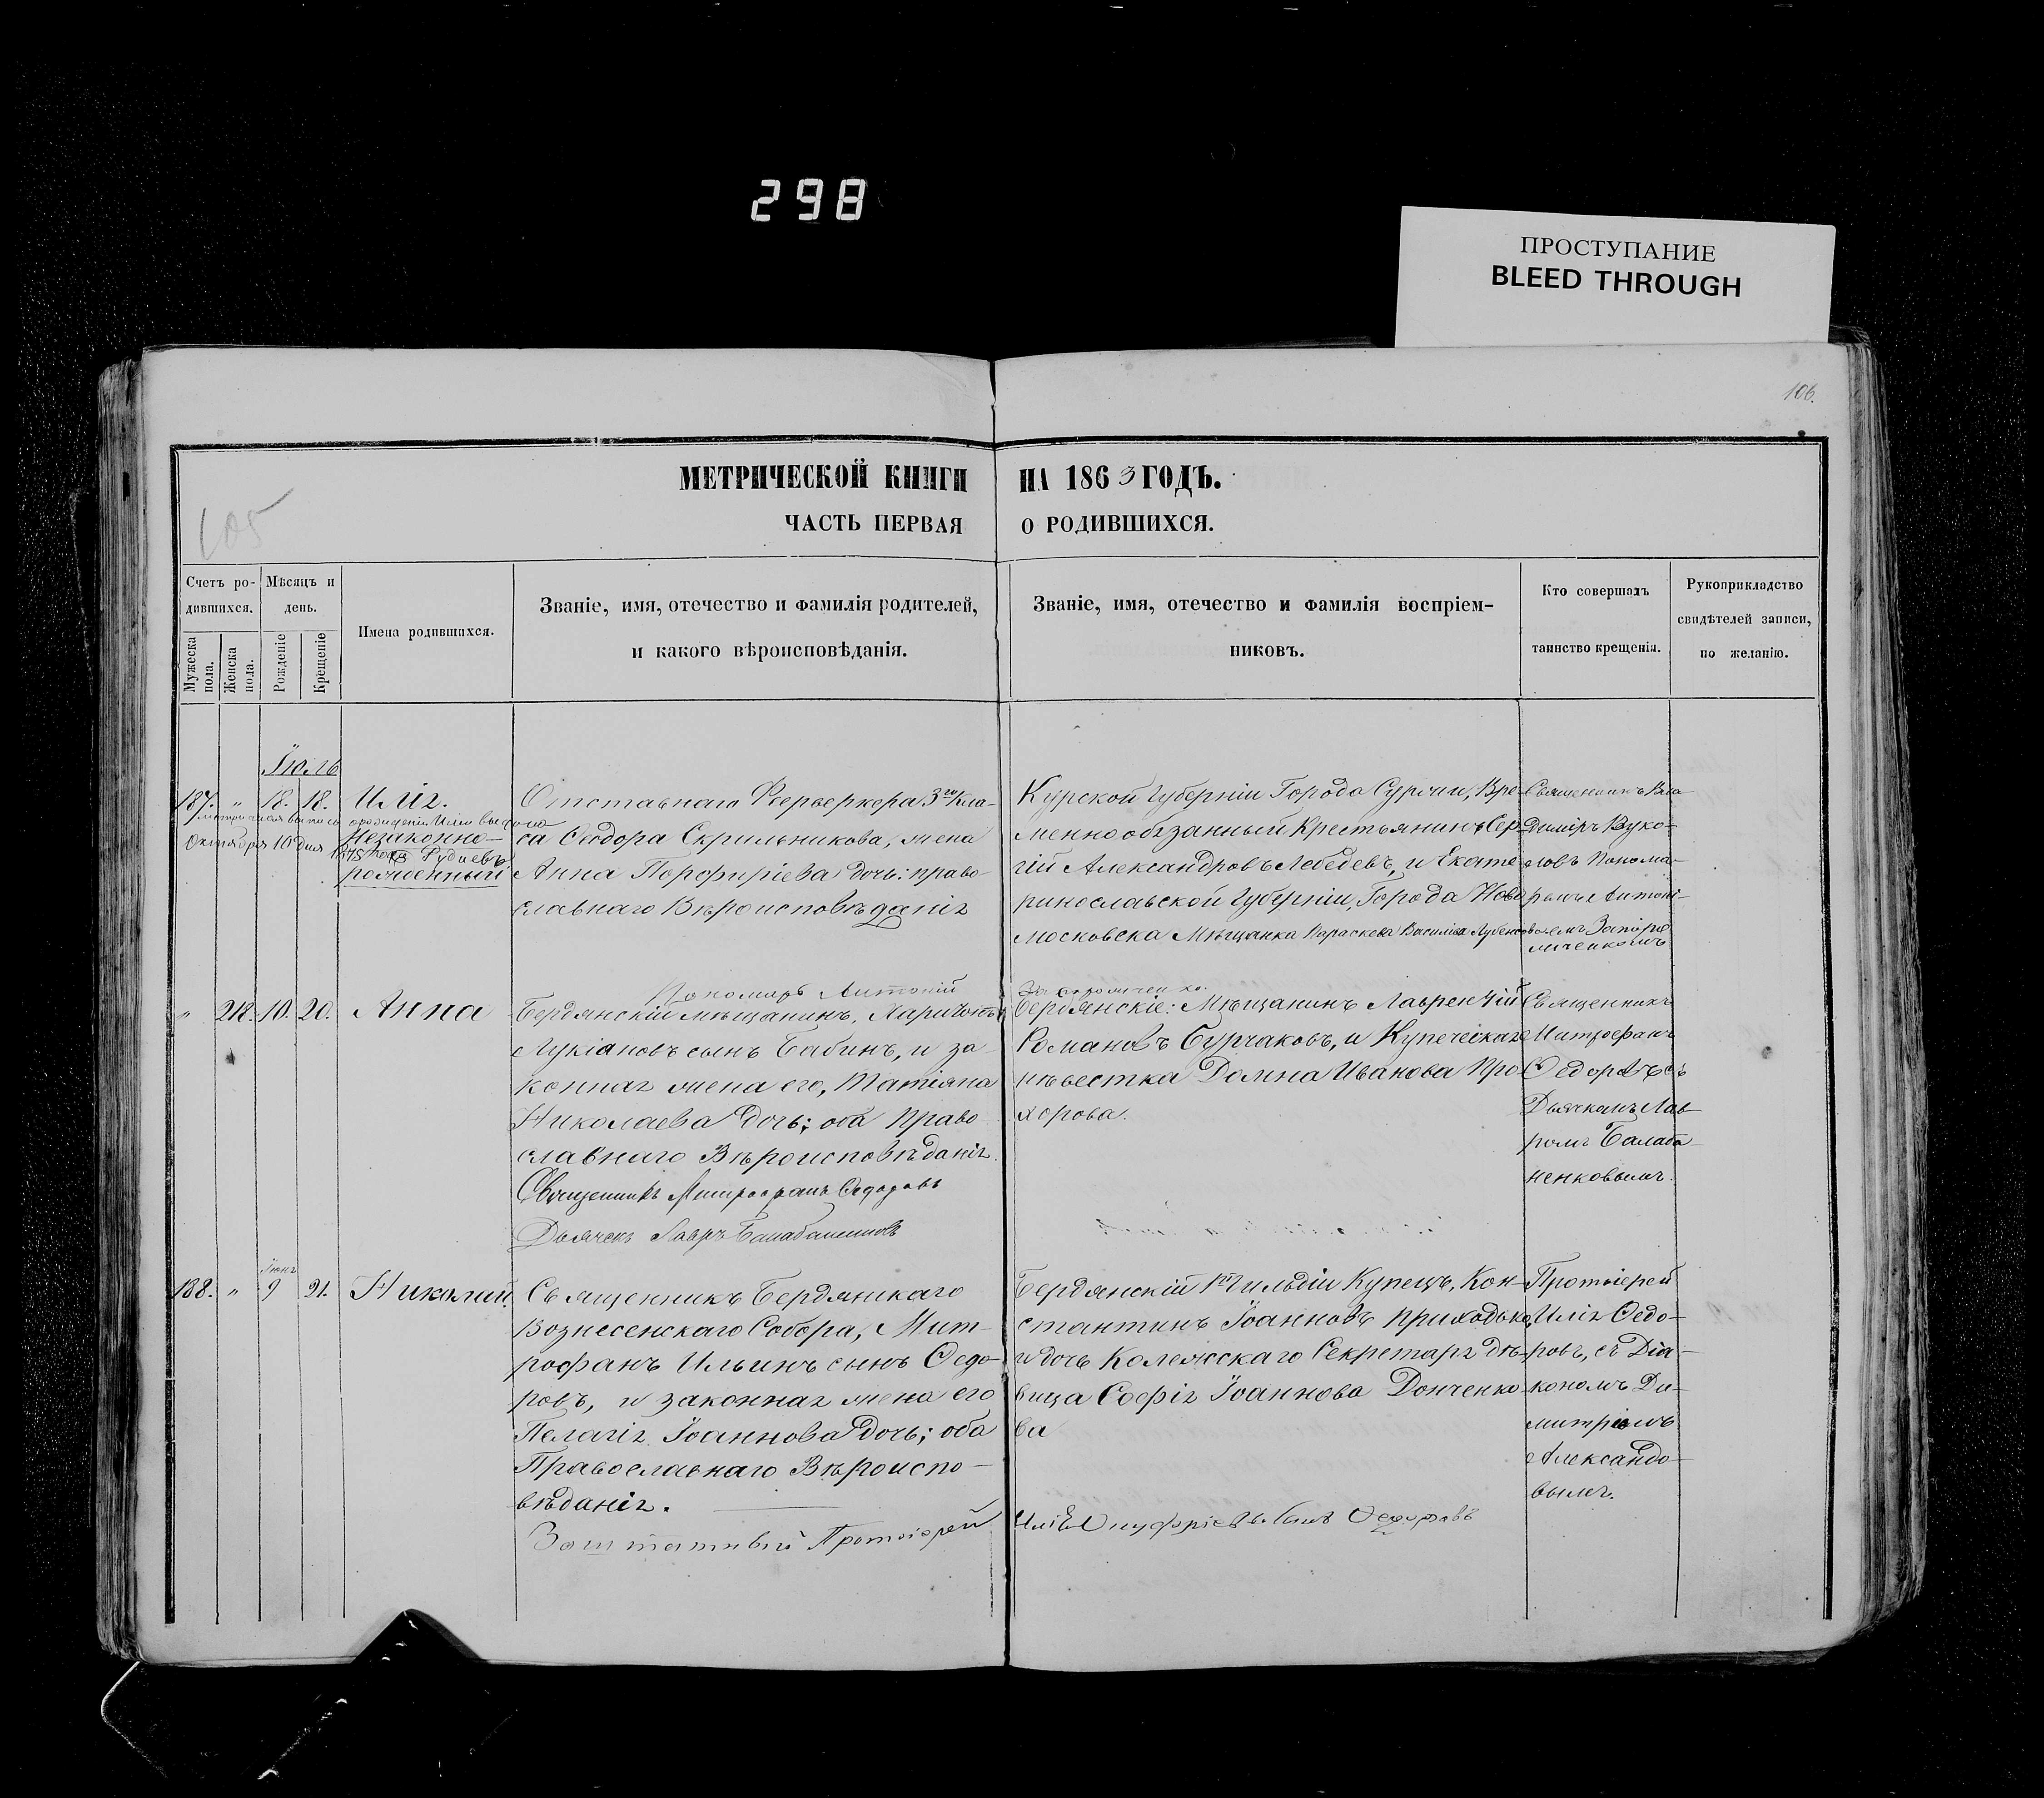 298
ПРОСТУПАНИЕ
BLEED THROUGH
106.
МЕТРИЧЕСКОЙ КНИГИ НА 1863 ГОДЪ.
105
ЧАСТЬ ПЕРВАЯ О РОДИВШИХСЯ.
Счетъ родившихся.
Мужеска пола.
Женска пола.
Мѣсяцъ и день.
Рожденіе
Крещеніе
Имена родившихся.
Званіе, имя, отечество и фамилія родителей,
и какого вѣроисповѣданія.
Званіе, имя, отечество и фамилія воспріем-
никовъ.
Кто совершалъ
таинство крещенія.
Рукоприкладство
свидѣтелей записи,
по желанію.
Іюль
187. " 18. 18. Илія.
Незаконно-
рожденный
Октября 10 дня
Отставнаго Феерверкера 3го Кла-
са Ѳеодора Скрильникова, жена
Анна Порфиріева дочь: право-
славнаго Вѣроисповѣданія
Курской Губерніи Города Суджи, Вре-
менно обязанный Крестьянинъ Сер-
гій Александровъ Лебедевъ, и Екате
ринославской Губерніи, Города Ново
московска Мѣщанка Параскева Василіева
Священникъ Вла-
диміръ Вуко-
ловъ Понома-
ремъ Антоні-
емъ
Пономарь Антоній
" 218. 10. 20. Анна
Бердянскій мѣщанинъ, Харитонъ
Лукіановъ сынъ Бабинъ, и за-
конная жена его, Татіяна
Николаева дочь; оба право
славнаго Вѣроисповѣданія.
Священникъ Митрофанъ Ѳедоровъ
Дьячекъ Лавръ Балабаненковъ
Бердянскіе: Мѣщанинъ Лаврентій
Романовъ Бурчаковъ, и Купеческая
невестка Домна Иванова Про
хорова.
Священникъ
Митрофанъ
Ѳедоровъ съ
Дьячкомъ Лав-
ромъ Балаба-
ненковымъ.
Іюня
188. " 9 21. Николай.
Священникъ Бердянскаго
Вознесенскаго Собора, Мит-
рофанъ Ильинъ сынъ Ѳедо-
ровъ, и законная жена его
Пелагія Іоаннова дочь; оба
Православнаго Вѣроиспо-
вѣданія.
Бердянскій 1й Гильдіи Купецъ, Кон-
стантинъ Іоанновъ Приходько,
и дочь Колежскаго Секретаря дѣ-
вица Софія Іоаннова Донченко-
ва
Протоіерей
Илія Ѳедо-
ровъ, съ Діа-
кономъ Ди-
митріемъ
Александо-
вымъ.
Заштатный Протоіерей Илія Онуфріевъ сынъ Ѳедоровъ